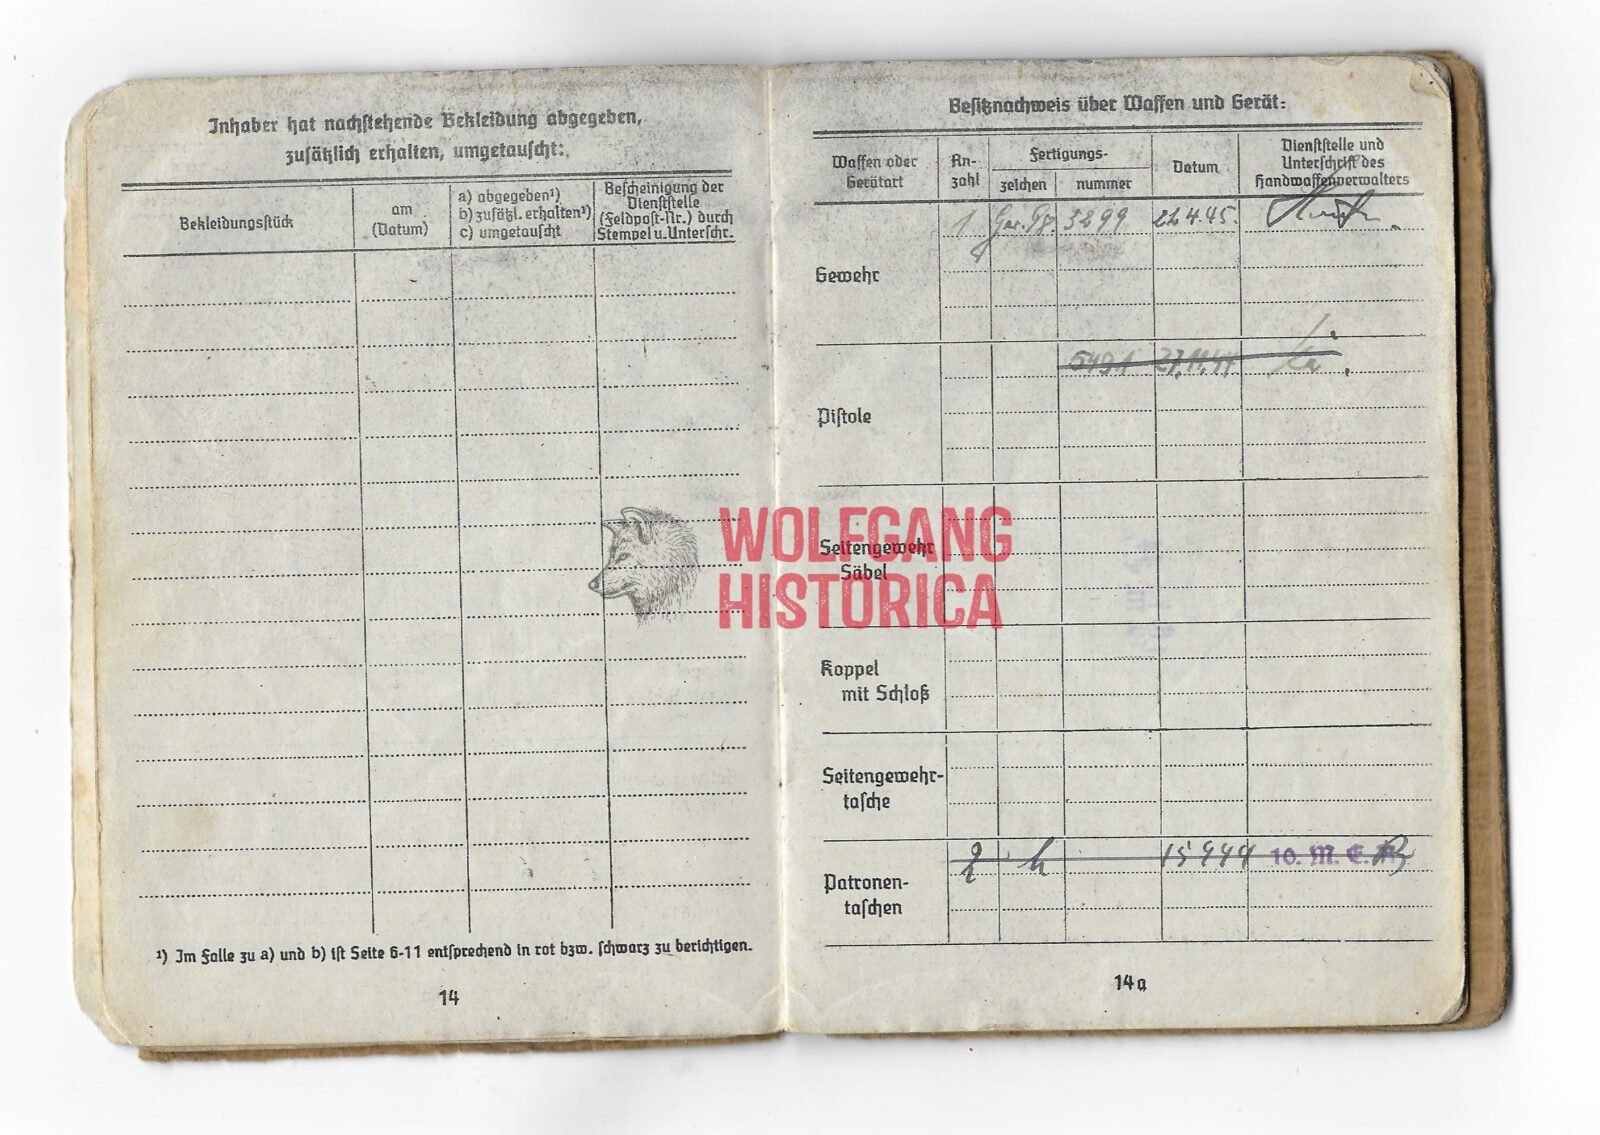 Inhaber hat nachstehende Bekleidung abgegeben,
zusätzlich erhalten, umgetauscht:
Bekleidungsstück
am
(Datum)
a) abgegeben¹)
b) zusätzl. erhalten¹)
c) umgetauscht
Bescheinigung der
Dienststelle
(Feldpost-Nr.) durch
Stempel u. Unterschr.
¹) Im Falle zu a) und b) ist Seite 6-11 entsprechend in rot bzw. schwarz zu berichtigen.
14
Besitznachweis über Waffen und Gerät:
Waffen oder
Gerätart
An-
zahl
Fertigungs-
zeichen
nummer
Datum
Dienststelle und
Unterschrift des
Handwaffenverwalters
1 3299 22.4.45.
Gewehr
27.11.44
Pistole
Seitengewehr
Säbel
Koppel
mit Schloß
Seitengewehr-
tasche
2 h 15444 10. M. E.
Patronen-
taschen
14a
WOLFGANG
HISTORICA